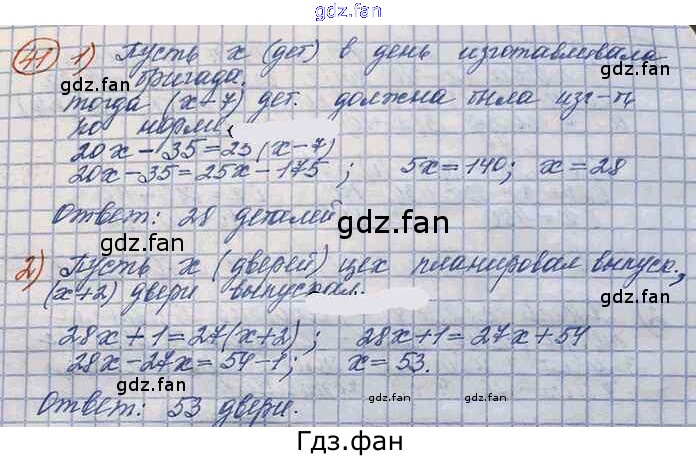 gdz.fan
41 1) Пусть x (дет) в день изготавливала
бригада.
gdz.fan
gdz.fan
тогда (x+7) дет. должна была изг-ть
по норме.
20x-35=25(x-7)
20x-35=25x-175; 5x=140; x=28
Ответ: 28 деталей
gdz.fan
gdz.fan
2) Пусть x (дверей) цех планировал выпуск.,
(x+2) двери выпускал.
gdz.fan
28x+1=27(x+2); 28x+1=27x+54
28x-27x=54-1; x=53.
gdz.fan
Ответ: 53 двери.
gdz.fan
gdz.fan
Гдз.фан